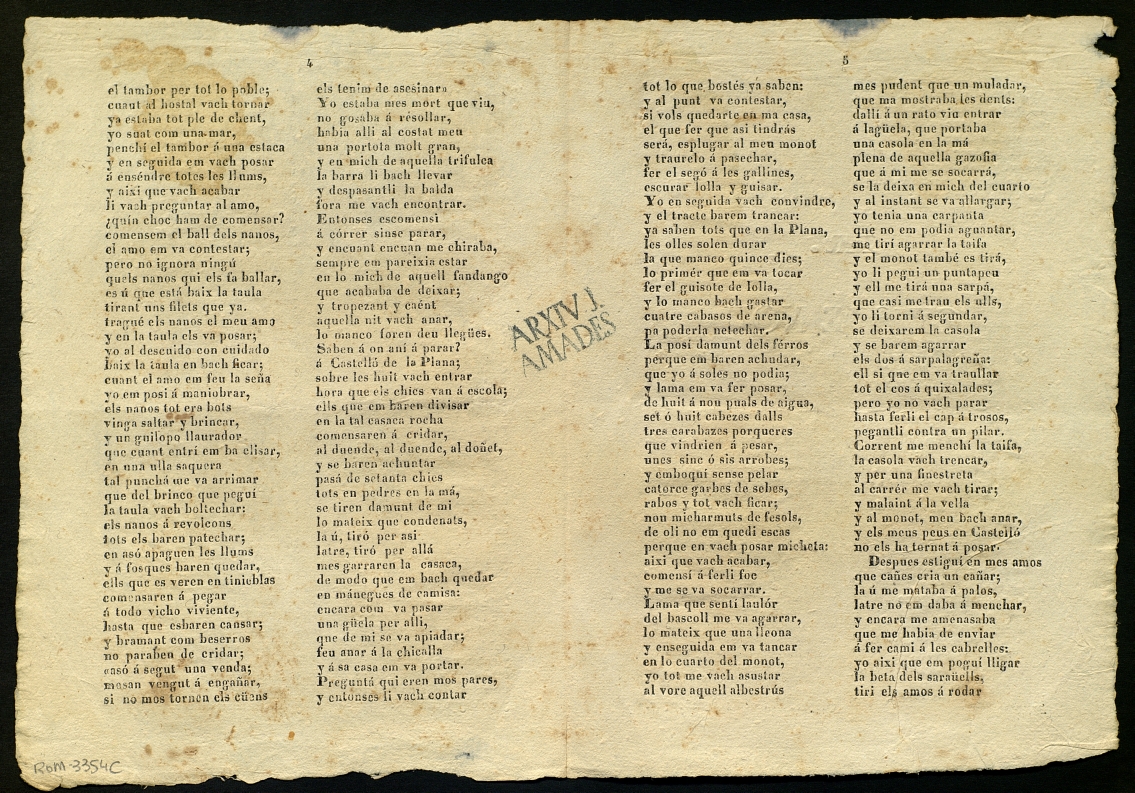 4
el tambor per tot lo poble;
cuant al hostal vach tornar
ya estaba tot ple de chent,
yo suat com una mar,
penchí el tambor á una estaca
y en seguida em vach posar
á enséndre totes les llums,
y aixi que vach acabar
li vach preguntar al amo,
¿quín choc ham de comensar?
comensem el ball dels nanos,
el amo em va contestar;
pero no ignora ningú
quels nanos qui els fa ballar,
es ú que está baix la taula
tirant uns filets que ya.
tragué els nanos el meu amo
y en la taula els va posar;
yo al descuido con cuidado
baix la taula en bach ficar;
cuant el amo em feu la seña
yo em posi á maniobrar,
els nanos tot era bots
vinga saltar y brincar,
y un guilopo llaurador
que cuant entrí em ba clisar,
en una ulla saquera
tal punchá me va arrimar
que del brinco que peguí
la taula vach boltechar:
els nanos á revolcons
tots els baren patechar;
en asó apaguen les llums
y á fosques baren quedar,
ells que es veren en tinieblas
comensaren á pegar
á todo vicho viviente,
hasta que esbaren cansar;
y bramant com beserros
no paraben de cridar;
asó á segut una venda;
mosan vengut á engañar,
si no mos tornen els cüens
els tenim de asesinar
Yo estaba mes mort que viu,
no gosaba á résollar,
habia alli al costat meu
una portota molt gran,
y en mich de aquella trifulca
la barra li bach llevar
y despasantli la balda
fora me vach encontrar.
Entonses escomensi
á córrer sinse parar,
y encuant encuan me chiraba,
sempre em pareixia estar
en lo mich de aquell fandango
que acababa de deixar;
y tropezant y caént
aquella nit vach anar,
lo manco foren deu llegües.
Saben á on aní á parar?
á Castelló de la Plana;
sobre les huit vach entrar
hora que els chics van á escola;
ells que em baren divisar
en la tal casaca rocha
comensaren á cridar,
al duende, al duende, al doñet,
y se baren achuntar
pasá de setanta chics
tots en pedres en la má,
se tiren damunt de mi
lo mateix que condenats,
la ú, tiró per asi
latre, tiró per allá
mes garraren la casaca,
de modo que em bach quedar
en mánegues de camisa:
encara com va pasar
una güela per alli,
que de mi se va apiadar;
feu anar á la chicalla
y á sa casa em va portar.
Preguntá qui eren mos pares,
y entonses li vach contar
5
tot lo que bostés ya saben:
y al punt va contestar,
si vols quedarte en ma casa,
el que fer que asi tindrás
será, esplugar al meu monot
y traurelo á pasechar,
fer el segó á les gallines,
escurar lolla y guisar.
Yo en seguida vach convindre,
y el tracte barem trancar:
ya saben tots que en la Plana,
les olles solen durar
la que manco quince dies;
lo primér que em va tocar
fer el guisote de lolla,
y lo manco bach gastar
cuatre cabasos de arena,
pa poderla netechar.
La posí damunt dels férros
perque em baren achudar,
que yo á soles no podia;
y lama em va fer posar,
de huit á nou puals de aigua,
set ó huit cabezes dalls
tres carabazes porqueres
que vindrien á pesar,
unes sinc ó sis arrobes;
y emboquí sense pelar
catorce garbes de sebes,
rabos y tot vach ficar;
nou micharmuts de fesols,
de oli no em quedi escas
perque en vach posar micheta:
aixi que vach acabar,
comensí á ferli foc
y me se va socarrar.
Lama que sentí laulór
del bascoll me va agarrar,
lo mateix que una lleona
y enseguida em va tancar
en lo cuarto del monot,
yo tot me vach asustar
al vore aquell albestrús
mes pudent que un muladar,
que ma mostraba les dents:
dalli á un rato viu entrar
á lagüela, que portaba
una casola en la má
plena de aquella gazofia
que á mi me se socarrá,
se la deixa en mich del cuarto
y al instant se va allargar;
yo tenia una carpanta
que no em podia aguantar,
me tirí agarrar la taifa
y el monot també es tirá,
yo li peguí un puntapeu
y ell me tirá una sarpá,
que casi me trau els ulls,
yo li torni á segundar,
se deixarem la casola
y se barem agarrar
els dos á sarpalagreña:
ell si que em va traullar
tot el cos á quixalades;
pero yo no vach parar
hasta ferli el cap á trosos,
pegantli contra un pilar.
Corrent me menchí la taifa,
la casola vach trencar,
y per una finestreta
al carrér me vach tirar;
y malaint á la vella
y al monot, meu bach anar,
y els meus peus en Castelló
no els ha tornat á posar.
Despues estiguí en mes amos
que cañes cria un cañar;
la ú me mataba á palos,
latre no em daba á menchar,
y encara me amenasaba
que me habia de enviar
á fer cami á les cabrelles:
yo aixi que em poguí lligar
la beta dels saraüells,
tiri els amos á rodar
ARXIV J.
AMADES
ROM-3354C